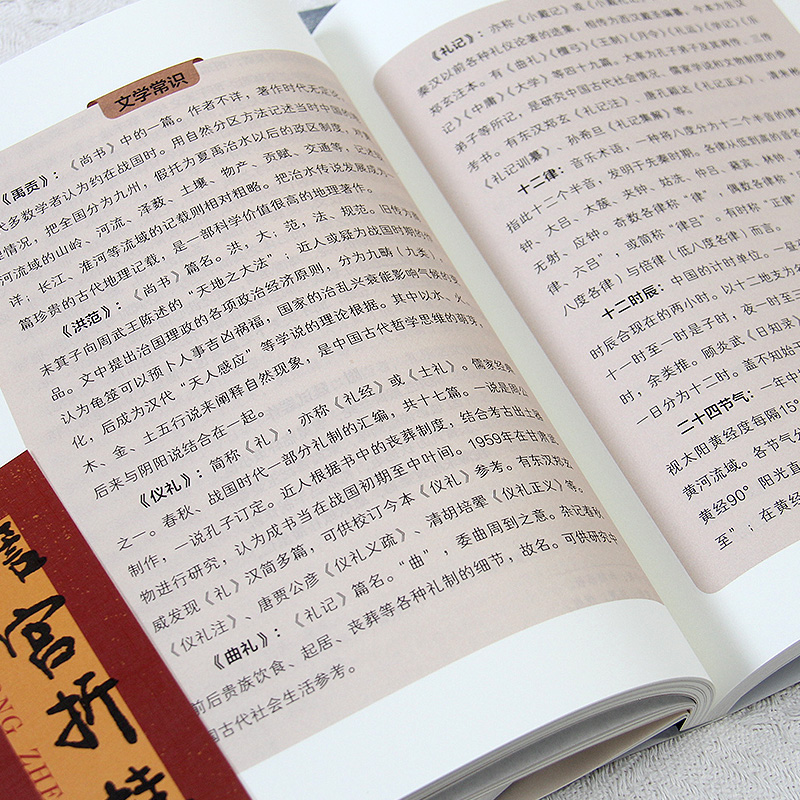 文学常识
《禹贡》：《尚书》中的一篇。作者不详，著作时代无定论，
代多数学者认为约在战国时。用自然分区方法记述当时中国的地
理情况，把全国分为九州，假托为夏禹治水以后的政区制度，对黄
河流域的山岭、河流、泽薮、土壤、物产、贡赋、交通等，记述较
详；长江、淮河等流域的记载则相对粗略。把治水传说发展成为一
篇珍贵的古代地理记载，是一部科学价值很高的地理著作。
《洪范》：《尚书》篇名。洪，大；范，法、规范。旧传为商
末箕子向周武王陈述的“天地之大法”；近人或疑为战国时期的作
品。文中提出治国理政的各项政治经济原则，分为九畴（九类），
认为龟筮可以预卜人事吉凶祸福，国家的治乱兴衰能影响气候的变
化，后成为汉代“天人感应”等学说的理论根据。其中以水、火、
木、金、土五行说来阐释自然现象，是中国古代哲学思维的萌芽，
后来与阴阳说结合在一起。
《仪礼》：简称《礼》，亦称《礼经》或《士礼》。儒家经典
之一。春秋、战国时代一部分礼制的汇编，共十七篇。一说是周公
制作，一说孔子订定。近人根据书中的丧葬制度，结合考古出土器
物进行研究，认为成书当在战国初期至中叶间。1959年在甘肃武
威发现《礼》汉简多篇，可供校订今本《仪礼》参考。有东汉郑玄
《仪礼注》、唐贾公彦《仪礼义疏》、清胡培翚《仪礼正义》等。
《曲礼》：《礼记》篇名。“曲”，委曲周到之意。杂记春秋
前后贵族饮食、起居、丧葬等各种礼制的细节，故名。可供研究中
国古代社会生活参考。
《礼记》：亦称《小戴记》或《小戴礼记》
秦汉以前各种礼仪论著的选集，相传为西汉戴圣编纂，今本为东汉
郑玄注本。有《曲礼》《檀弓》《王制》《月令》《礼运》《学记》《乐
记》《中庸》《大学》等四十九篇，大率为孔子弟子及其再传、三传
弟子等所记，是研究中国古代社会情况、儒家学说和文物制度的参
考书。有东汉郑玄《礼记注》、唐孔颖达《礼记正义》、清朱彬
《礼记训纂》、孙希旦《礼记集解》等。
十二律：音乐术语，一种将八度分为十二个半音的律
指此十二个半音，发明于先秦时期。各律从低到高的音名
钟、大吕、太簇、夹钟、姑洗、仲吕、蕤宾、林钟、
无射、应钟。奇数各律称“律”，偶数各律称“
律、六吕”，或简称“律吕”。有时称“正律
八度各律）与倍律（低八度各律）而言。
十二时辰：中国的计时单位。一昼
时辰合现在的两小时。以十二地支为名
十一时至一时是子时，夜一时至三
时，余类推。顾炎武《日知录》
一日分为十二时。盖不知始于
二十四节气：一年中
视太阳黄经度每隔15°
黄河流域。各节气分
黄经90° 阳光直
至”；在黄经
宫
折
NG ZHE